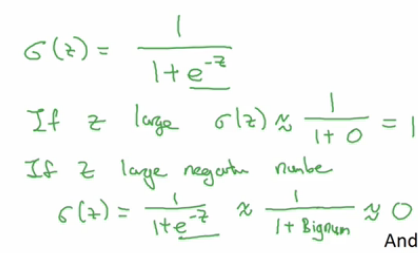 σ(z) = 1 / (1 + e^-z)
If z large σ(z) ≈ 1 / (1 + 0) = 1
If z large negative number
σ(z) = 1 / (1 + e^-z) ≈ 1 / (1 + Bignum) ≈ 0
And